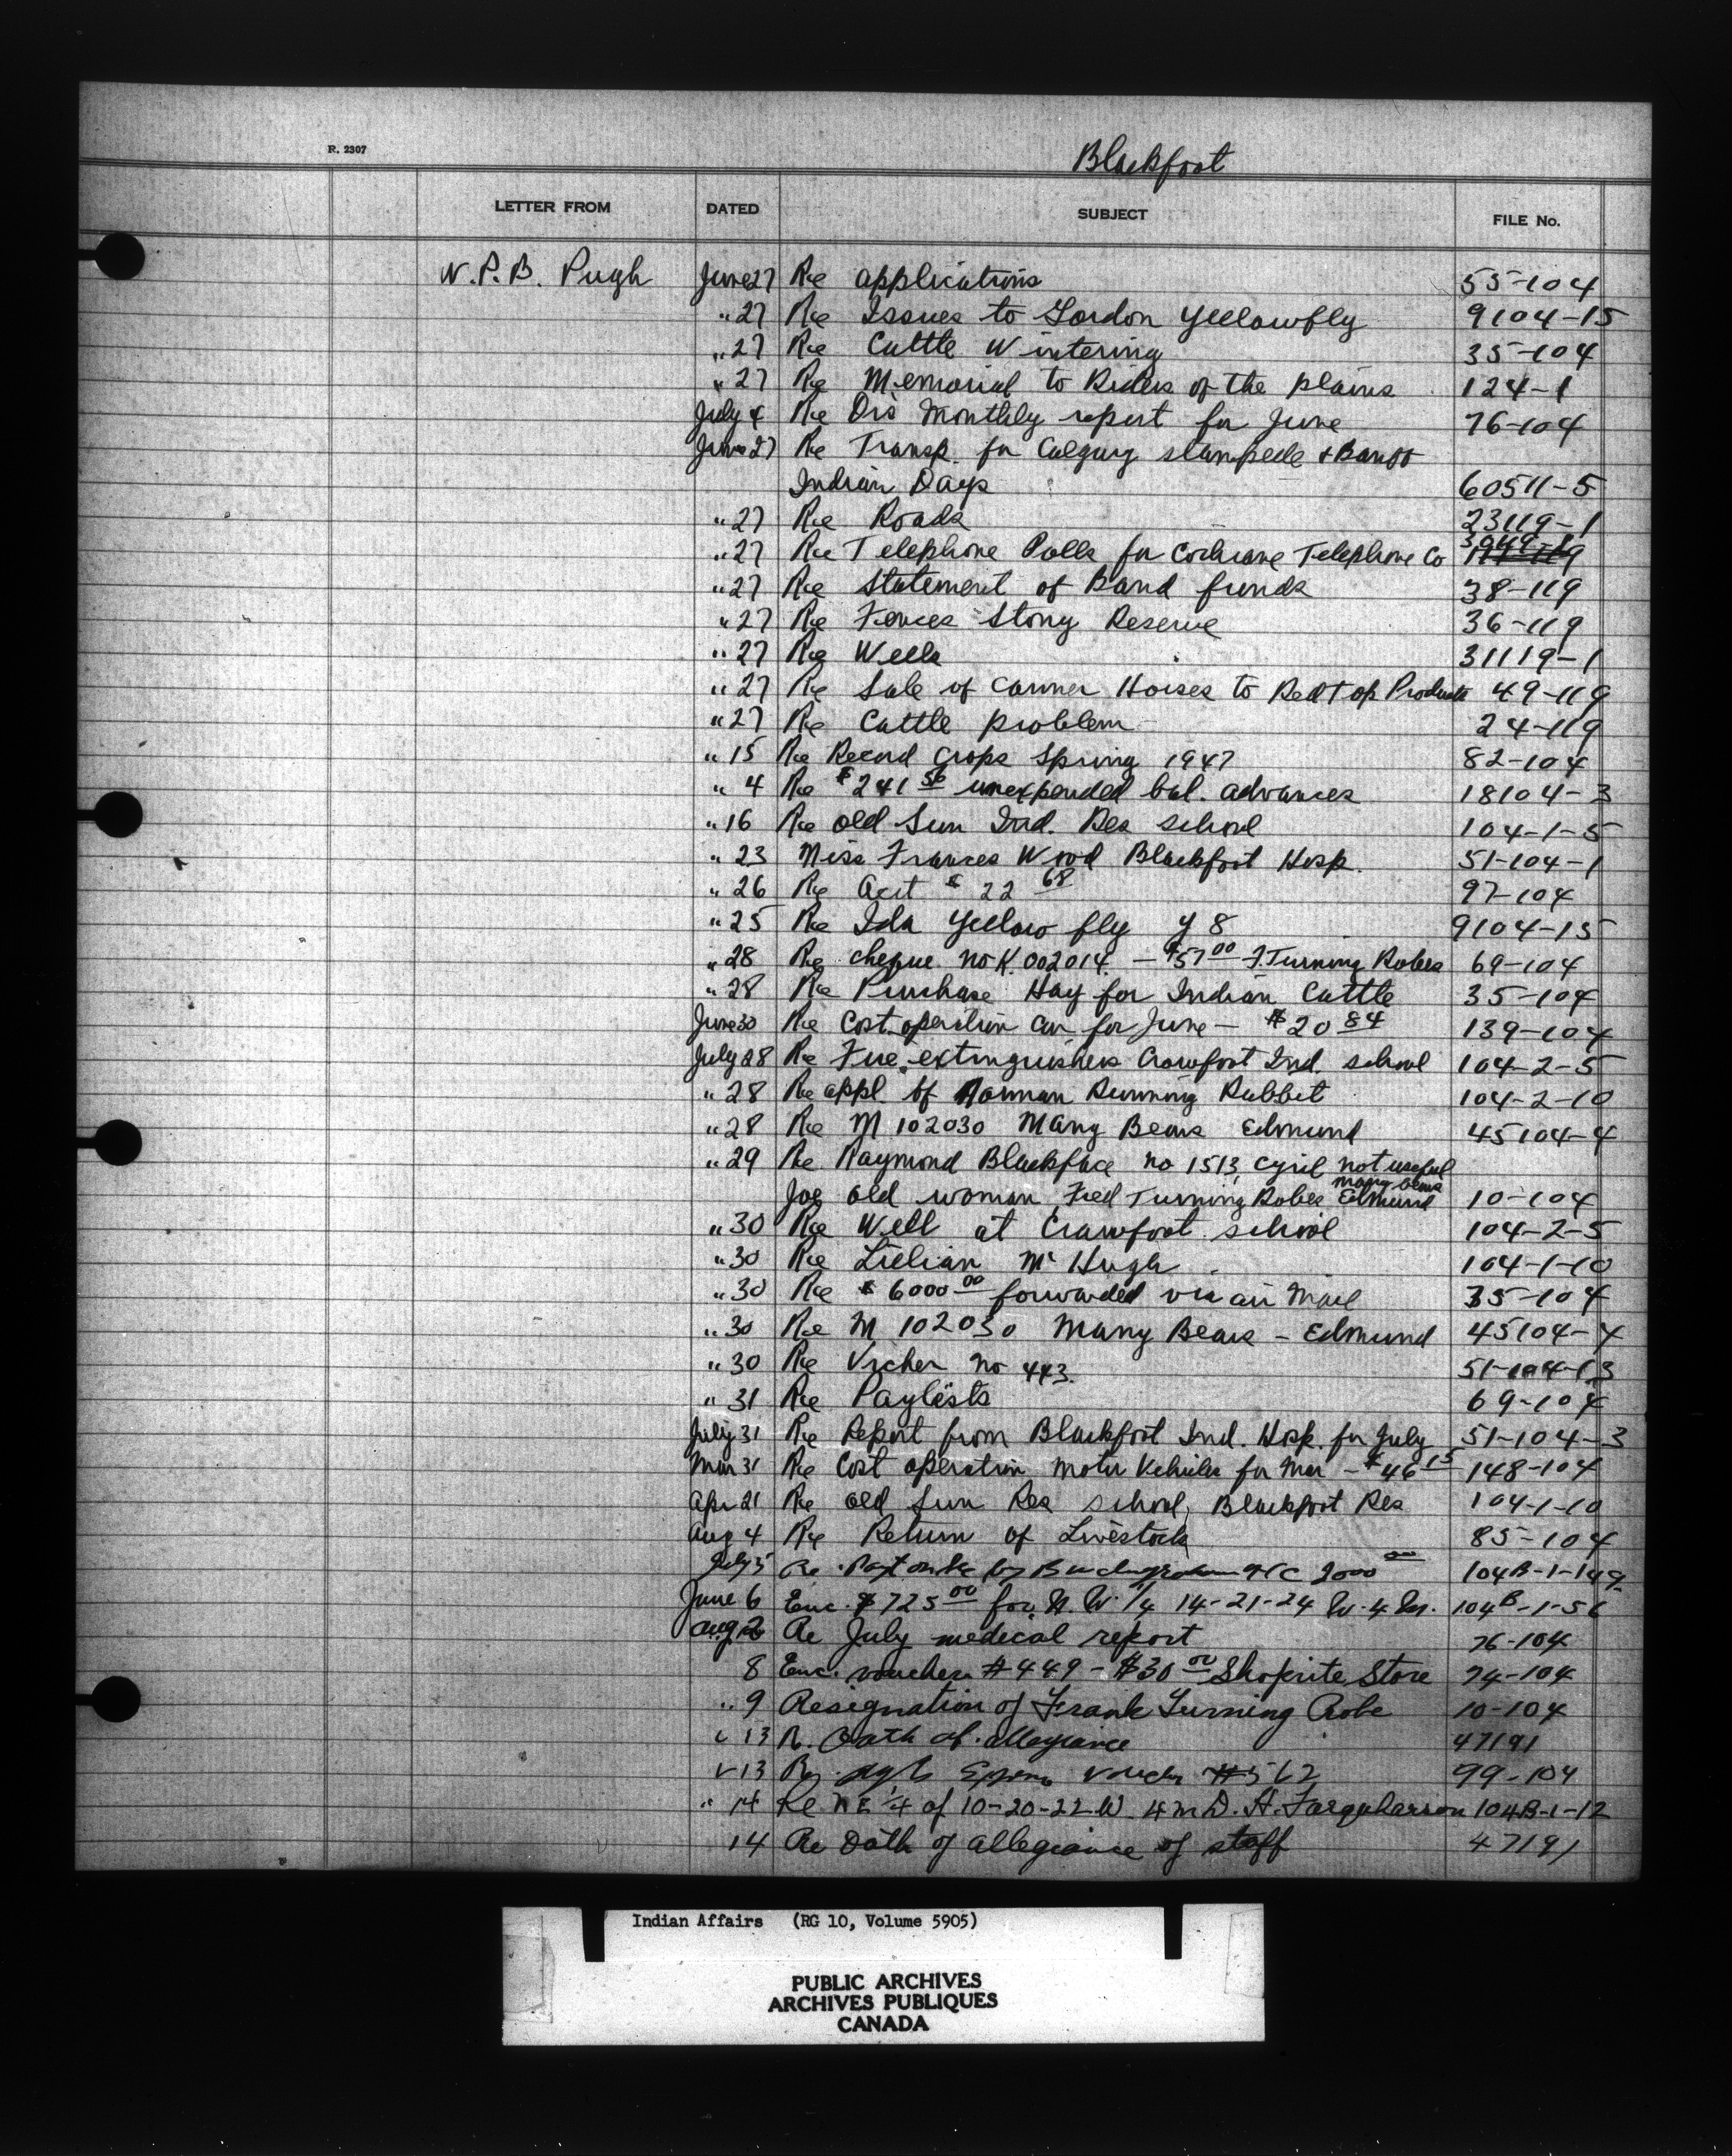 R. 2307
Blackfoot
LETTER FROM DATED SUBJECT FILE No.
W. P. B. Pugh June 27 Re applications 55-104
" 27 Re Issues to Gordon Yellowfly 9104-15
" 27 Re Cattle Wintering 35-104
" 27 Re Memorial to Riders of the plains 124-1
July 4 Re Drs Monthly report for June 76-104
June 27 Re Transp. for Calgary stampede + Banff
Indian Days 60511-5
" 27 Re Roads 23119-1
" 27 Re Telephone Polls for Cochrane Telephone Co
" 27 Re Statement of Band funds 38-119
" 27 Re Fences Stony Reserve 36-119
" 27 Re Wells 31119-1
" 27 Re Sale of canner Horses to Red Top Products 49-119
" 27 Re Cattle problem 24-119
" 15 Re Record Crops Spring 1947 82-104
" 4 Re $241 56 unexpended bal. advances 18104-3
" 16 Re old Sun Ind. Res school 104-1-5
" 23 Miss Frances Wood Blackfoot Hosp. 51-104-1
" 26 Re Acct $ 22 68 97-104
" 25 Re Ida Yellow fly Y 8 9104-15
" 28 Re cheque No K. 002014 - $57 00 F. Turning Robes 69-104
" 28 Re Purchase Hay for Indian Cattle 35-104
June 30 Re Cost operation Car for June - $20 84 139-104
July 28 Re Fire extinguishers Crowfoot Ind. school 104-2-5
" 28 Re appl. of Norman Running Rabbit 104-2-10
" 28 Re M 102030 Many Bears Edmund 45104-4
" 29 Re Raymond Blackface no 1513, Cyril not useful
Joe old woman, Fred Turning Robes many bears Edmund 10-104
" 30 Re Well at Crowfoot school 104-2-5
" 30 Re Lillian McHugh 104-1-10
" 30 Re $ 6000 00 forwarded via air mail 35-104
" 30 Re M 102030 Many Bears - Edmund 45104-4
" 30 Re Vocher No 443. 51-104-13
" 31 Re Paylists 69-104
July 31 Re Report from Blackfoot Ind. Hosp. for July 51-104-3
Mar 31 Re Cost operation motor Vehicles for Mar - $46 15 148-104
Apr 21 Re old Sun Res school, Blackfoot Res 104-1-10
Aug 4 Re Return of Livestock 85-104
July 5 Re 2000 00 104B-1-149
June 6 Enc. $725 00 for N.W. 1/4 14-21-24 W. 4 M. 104B-1-56
Aug 2 Re July medical report 76-104
8 Enc. voucher #449 - $30 00 Shoprite Store 74-104
" 9 Resignation of Frank Turning Robe 10-104
" 13 R. Oath of allegiance 47191
" 13 Re voucher #562 99-104
" 14 Re N E 1/4 of 10-20-22 W. 4 m D. H. Farquharson 104B-1-12
14 Re Oath of allegiance of staff 47191
Indian Affairs (RG 10, Volume 5905)
PUBLIC ARCHIVES
ARCHIVES PUBLIQUES
CANADA